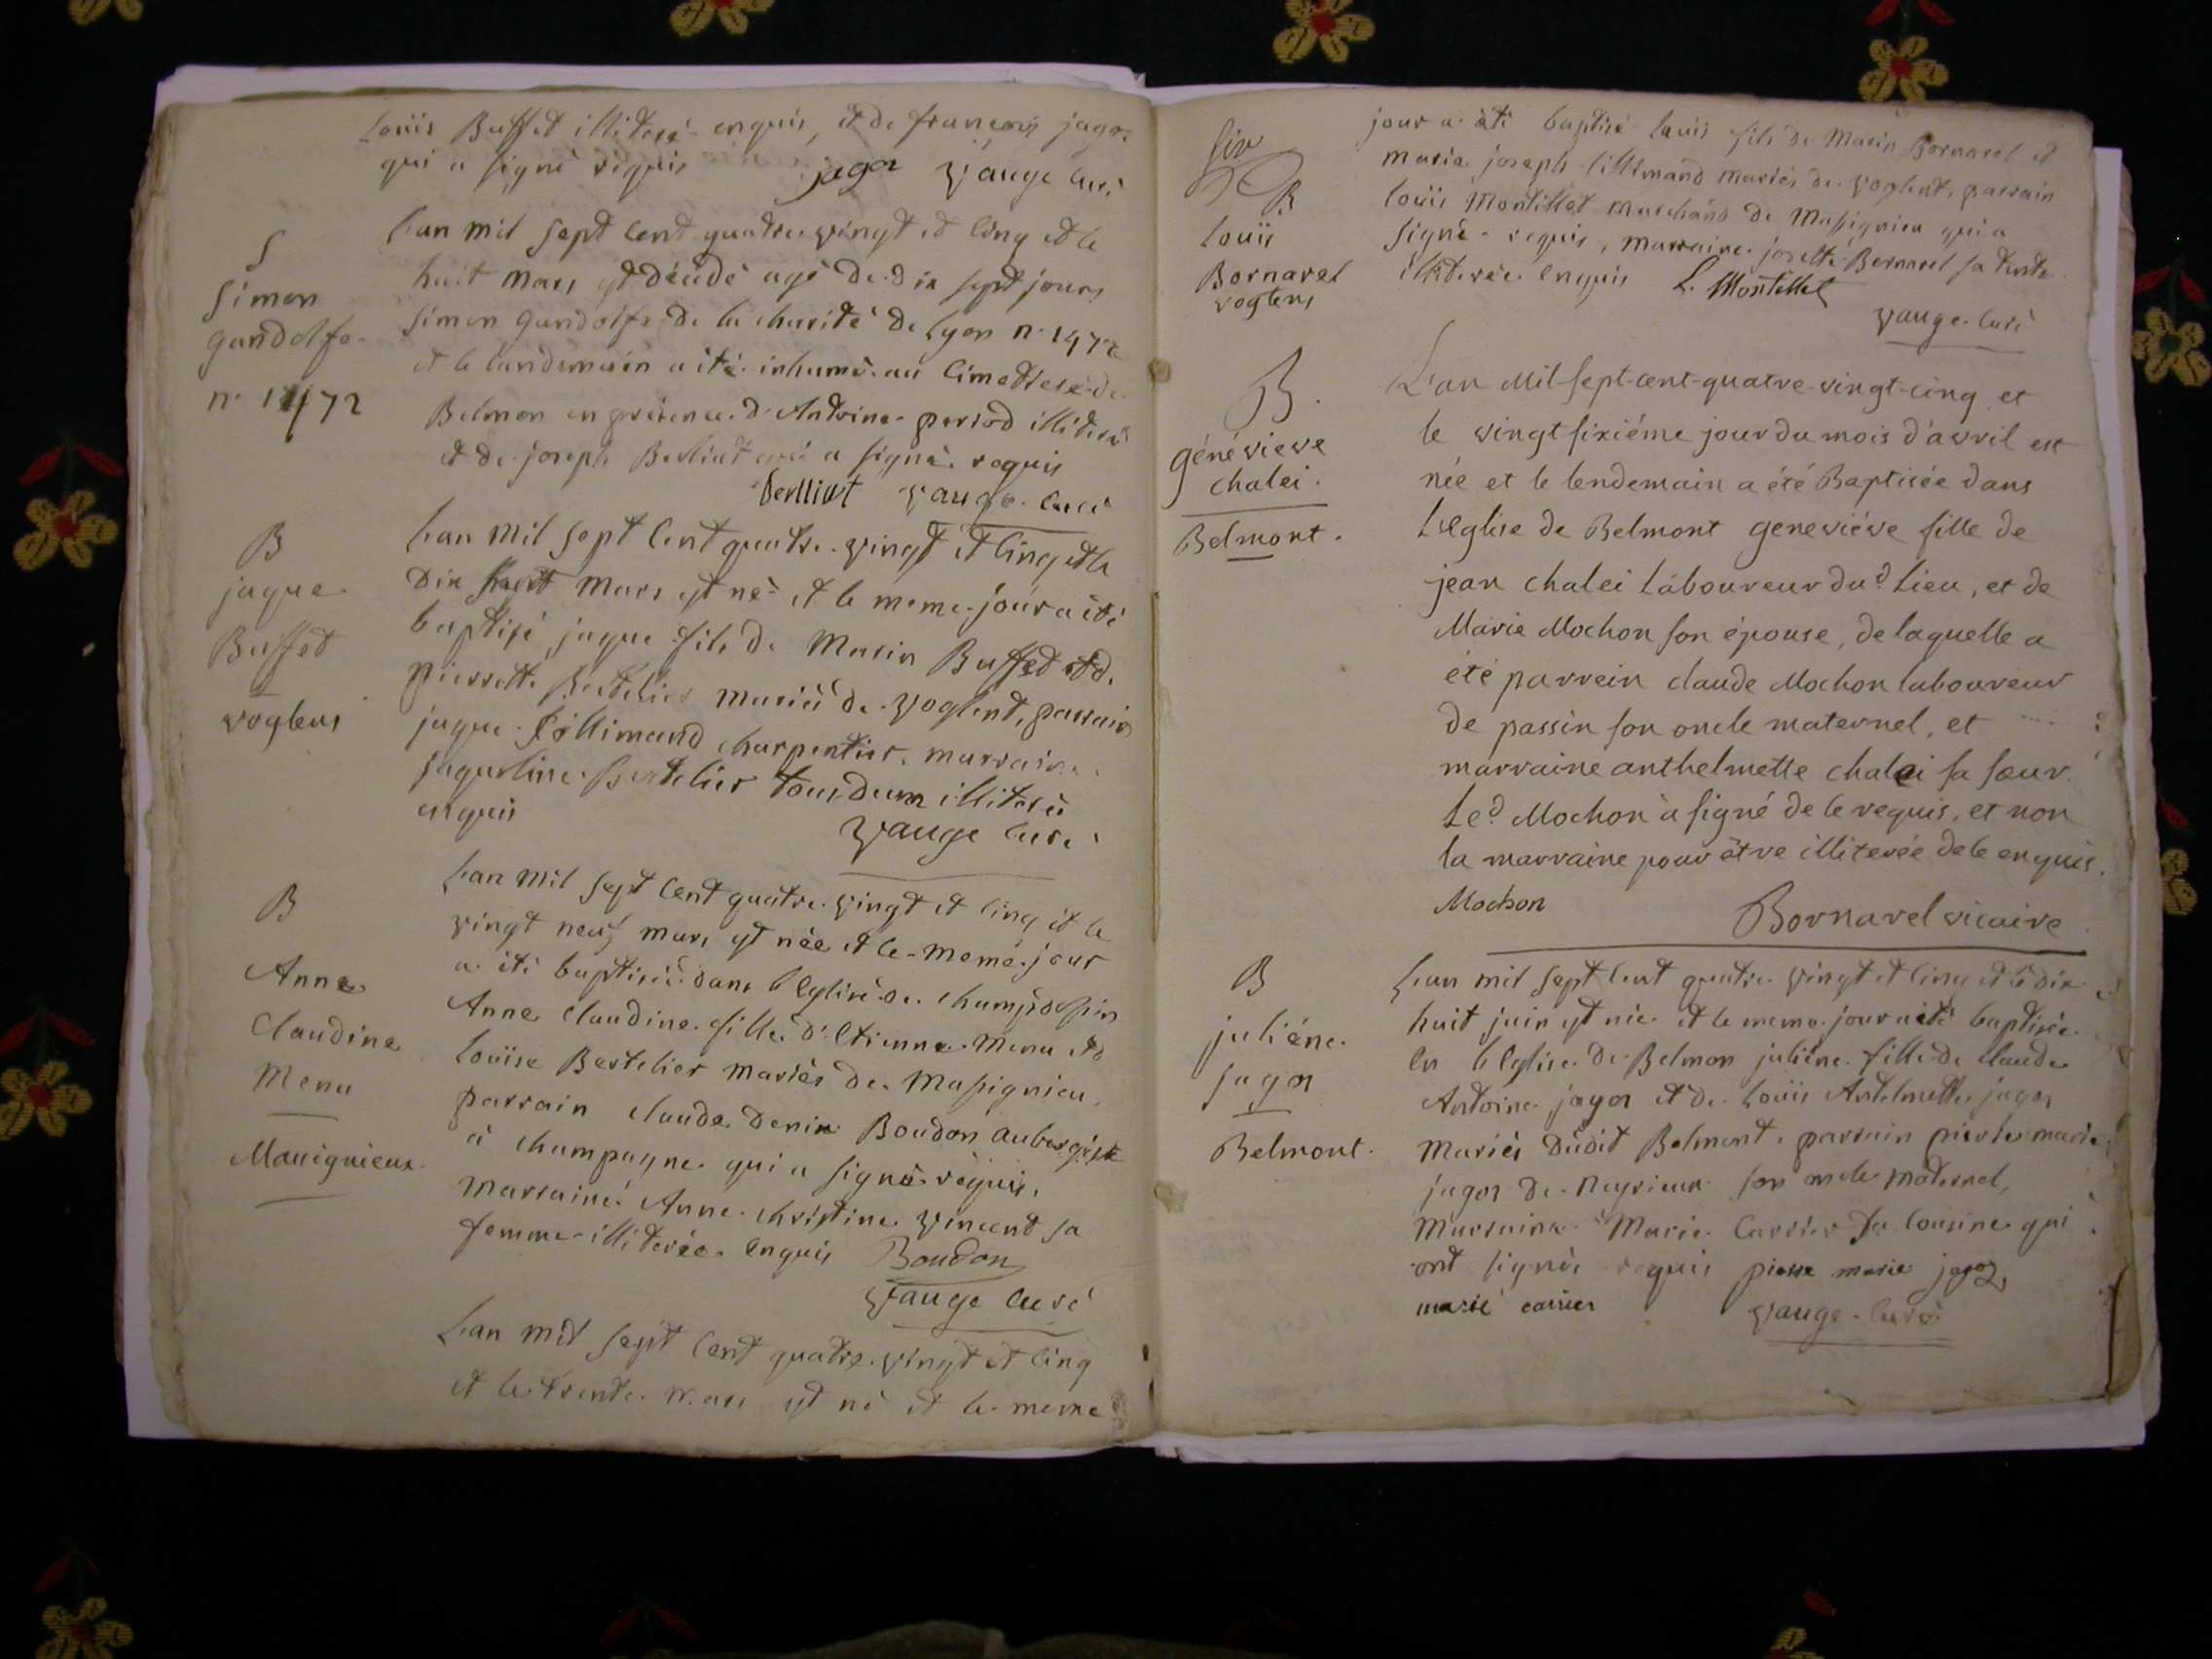 Louis Buffet illiteré enquis, et de françois jagot
qui a signé requis jagot vauge curé
S
Simon
gandolfe
n. 1472
L'an mil sept cent quatre vingt et cinq et le
huit mars est décédé agé de dix sept jours
Simon gandolfe de la charité de Lyon n. 1472
et le landemain a été inhumé au cimettere de
Belmon en présence d'Antoine period illiteré
et de joseph Berliat qui a signé requis
Berlliat vauge curé
B
jaque
Buffet
voglens
L'an mil sept cent quatre vingt et cinq et le
dix sept mars est né et le meme jour a été
baptisé jaque fils de Marin Buffet et de
pierrette Bertelier mariés de voglent, parrain
jaque fillimand charpentier, marraine
jaqueline Bertelier tous deux illiterés
enquis
vauge curé
B
Anne
Claudine
Menu
Massignieux
L'an mil sept cent quatre vingt et cinq et le
vingt neuf mars est née et le meme jour
a été baptisée dans l'Eglise de champdossin
Anne Claudine fille d'Etienne Menu et de
Louise Bertelier mariés de Massignieu
parrain claude denis Boudon aubergiste
à champagne qui a signé requis,
marraine Anne christine vincent sa
femme illiterée enquis Boudon
vauge curé
L'an mil sept cent quatre vingt et cinq
et le trente mars est né et le meme
B
Louis
Bornarel
voglens
jour a été baptisé louis fils de Marin Bornarel et
marie joseph fillimand mariés de voglent, parrain
louis Montillet marchand de Massignieu qui a
signé requis, marraine josette Bornarel sa tante
illiterée enquis L. Montillet
vauge curé
B.
généviéve
chalei.
Belmont.
L'an Mil-sept-cent-quatre-vingt-cinq et
le vingt sixiéme jour du mois d'avril est
née et le lendemain a été Baptisée dans
L'Eglise de Belmont geneviéve fille de
jean chalei Laboureur dud. Lieu, et de
Marie Mochon son épouse, de laquelle a
été parrein claude Mochon laboureur
de passin son oncle maternel, et
marraine anthelmette chalei sa sœur.
Led. Mochon à signé de le requis, et non
la marraine pour être illiterée de le enquis.
Mochon Bornarel vicaire
B
juliéne
jagot
Belmont.
L'an mil sept cent quatre vingt et cinq et le dix
huit juin est née et le meme jour a été baptisée
en l'Eglise de Belmon juliéne fille de claude
Antoine jagot et de Louis Antelmette jagot
Mariés dudit Belmont, parrain pierre marie
jagot de neyrieux son oncle maternel,
Marraine Marie carrier sa cousine qui
ont signés requis pierre marie jagoz
marie carrier vauge curé